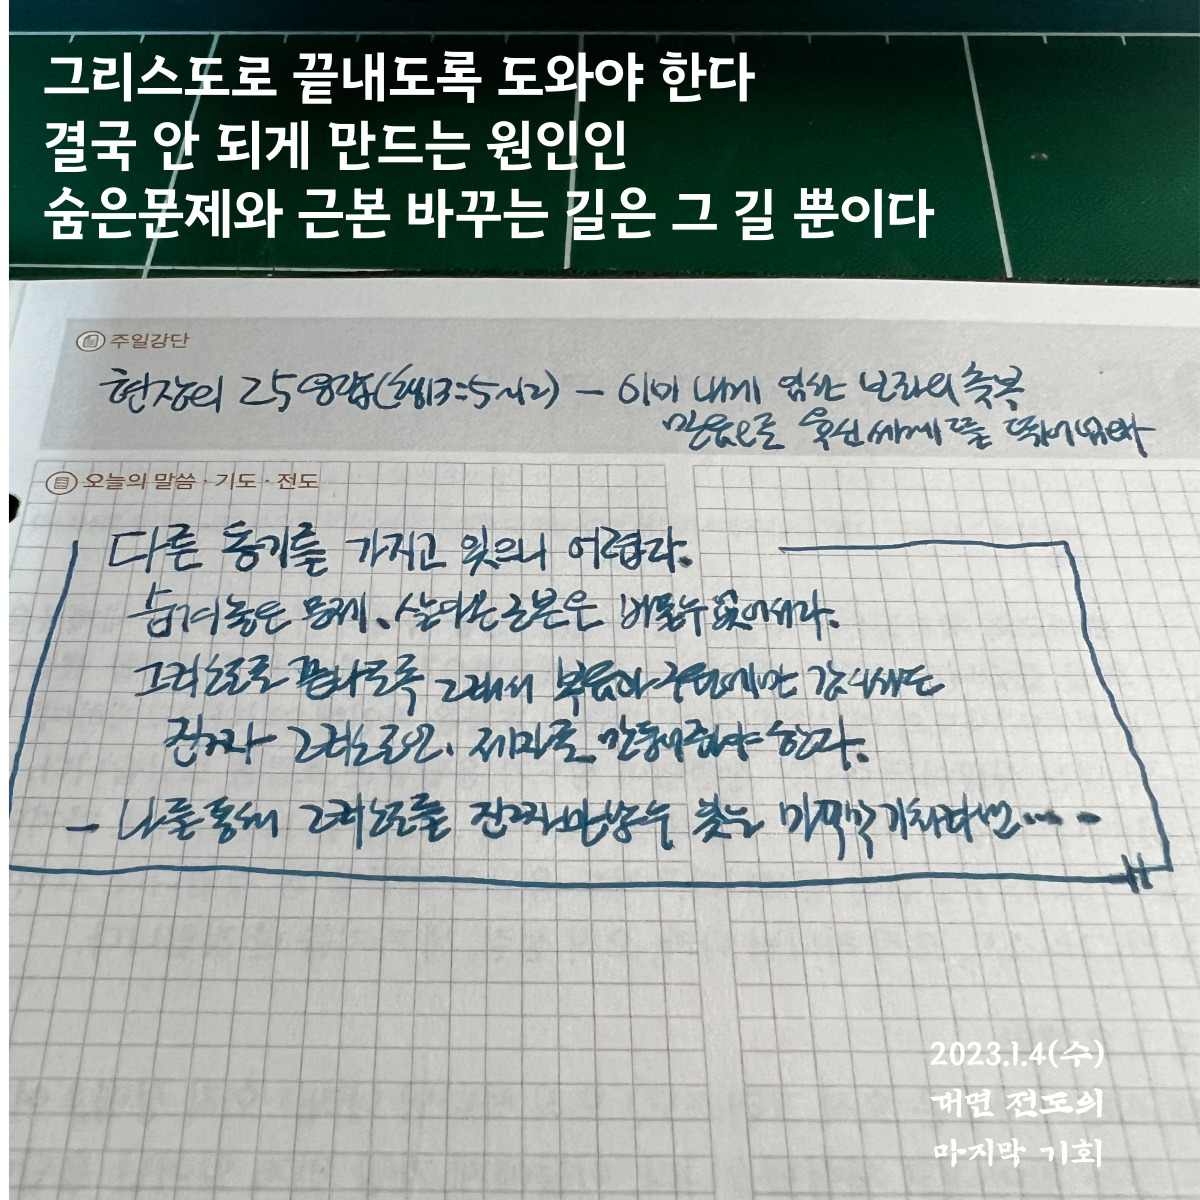 그리스도로 끝내도록 도와야 한다
결국 안 되게 만드는 원인인
숨은문제와 근본 바꾸는 길은 그 길 뿐이다
주일강단
현장의 25 응답 - 이미 내게 임한 보좌의 축복
믿음으로 를 뛰어넘어라
오늘의 말씀·기도·전도
다른 동기를 가지고 있으니 어렵다.
숨겨놓은 문제, 근본은 바꿀수 없어서다.
그리스도로 끝나도록 그래서 복음이 구원에만 감사해도
진짜 그리스도인, 제자로 만들어줘야 한다.
- 나를 통해 그리스도를 만날 수 있는 마지막 기회라면....
2023.1.4(수)
대면 전도의
마지막 기회